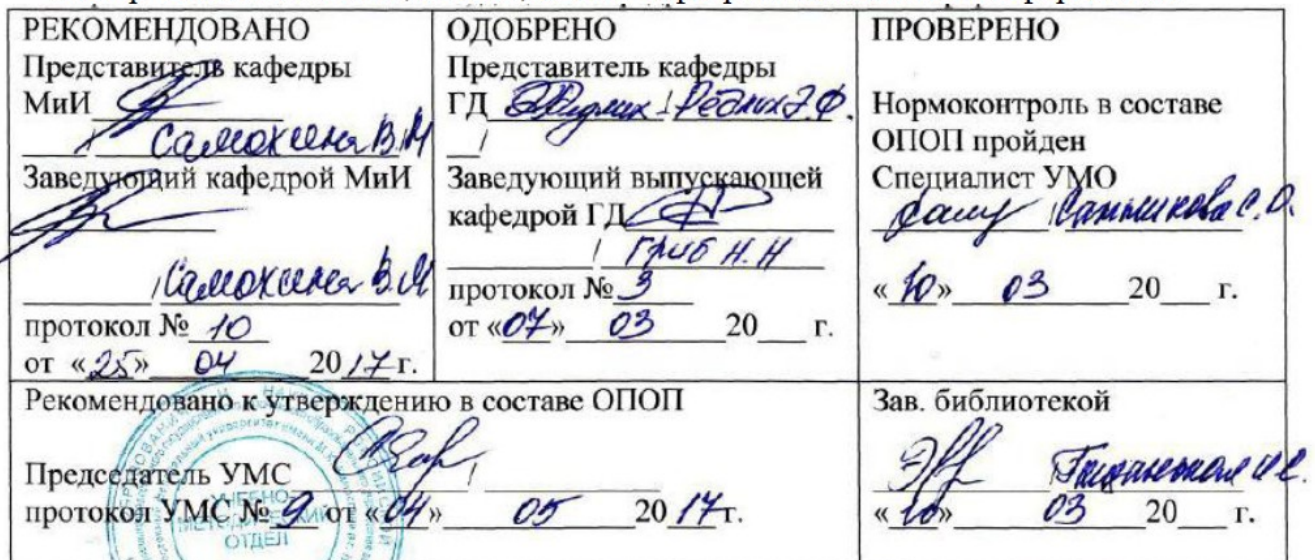 РЕКОМЕНДОВАНО
Представитель кафедры
МиИ
/ Самохина В.М
Заведующий кафедрой МиИ
/ Самохина В.М
протокол № 10
от «25» 04 2017 г.
ОДОБРЕНО
Представитель кафедры
ГД / Редлих Э.Ф.
/
Заведующий выпускающей
кафедрой ГД
/ Гриб Н.Н
протокол № 3
от «07» 03 20 г.
ПРОВЕРЕНО
Нормоконтроль в составе
ОПОП пройден
Специалист УМО
/ Санникова С.О.
«10» 03 20 г.
Рекомендовано к утверждению в составе ОПОП
Председатель УМС /
протокол УМС № 9 от «04» 05 2017 г.
УЧЕБНО-
МЕТОДИЧЕСКИЙ
ОТДЕЛ
Зав. библиотекой
«10» 03 20 г.